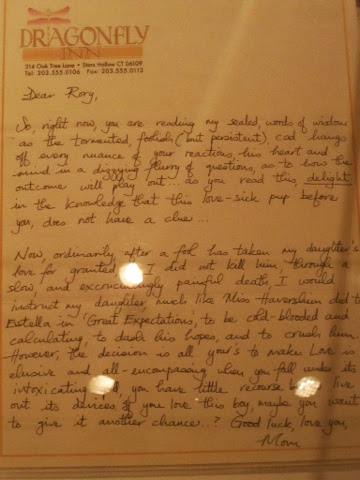 DRAGONFLY
INN
314 Oak Tree Lane • Stars Hollow CT 06109
Tel: 203.555.0106 Fax: 203.555.0112
Dear Rory,
So, right now, you are reading my sealed, words of wisdom
as the tormented, foolish (but persistent) cad hangs
off every nuance of your reactions, his heart and
mind in a dizzying flurry of questions, as to how the
outcome will play out... as you read this, delight
in the knowledge that this love-sick pup before
you, does not have a clue...
Now, ordinarily, after a fool has taken my daughter's
love for granted, I did not kill him, through a
slow, and excruciatingly painful death, I would
instruct my daughter much like Miss Haversham did to
Estella in 'Great Expectations', to be cold-blooded and
calculating, to dash his hopes, and to crush him.
However, the decision is all your's to make. Love is
elusive and all-encompassing when you fall under its
intoxicating, you have little recourse but live
out its devices. If you love this boy, maybe you want
to give it another chance..? Good luck, love you,
Mom